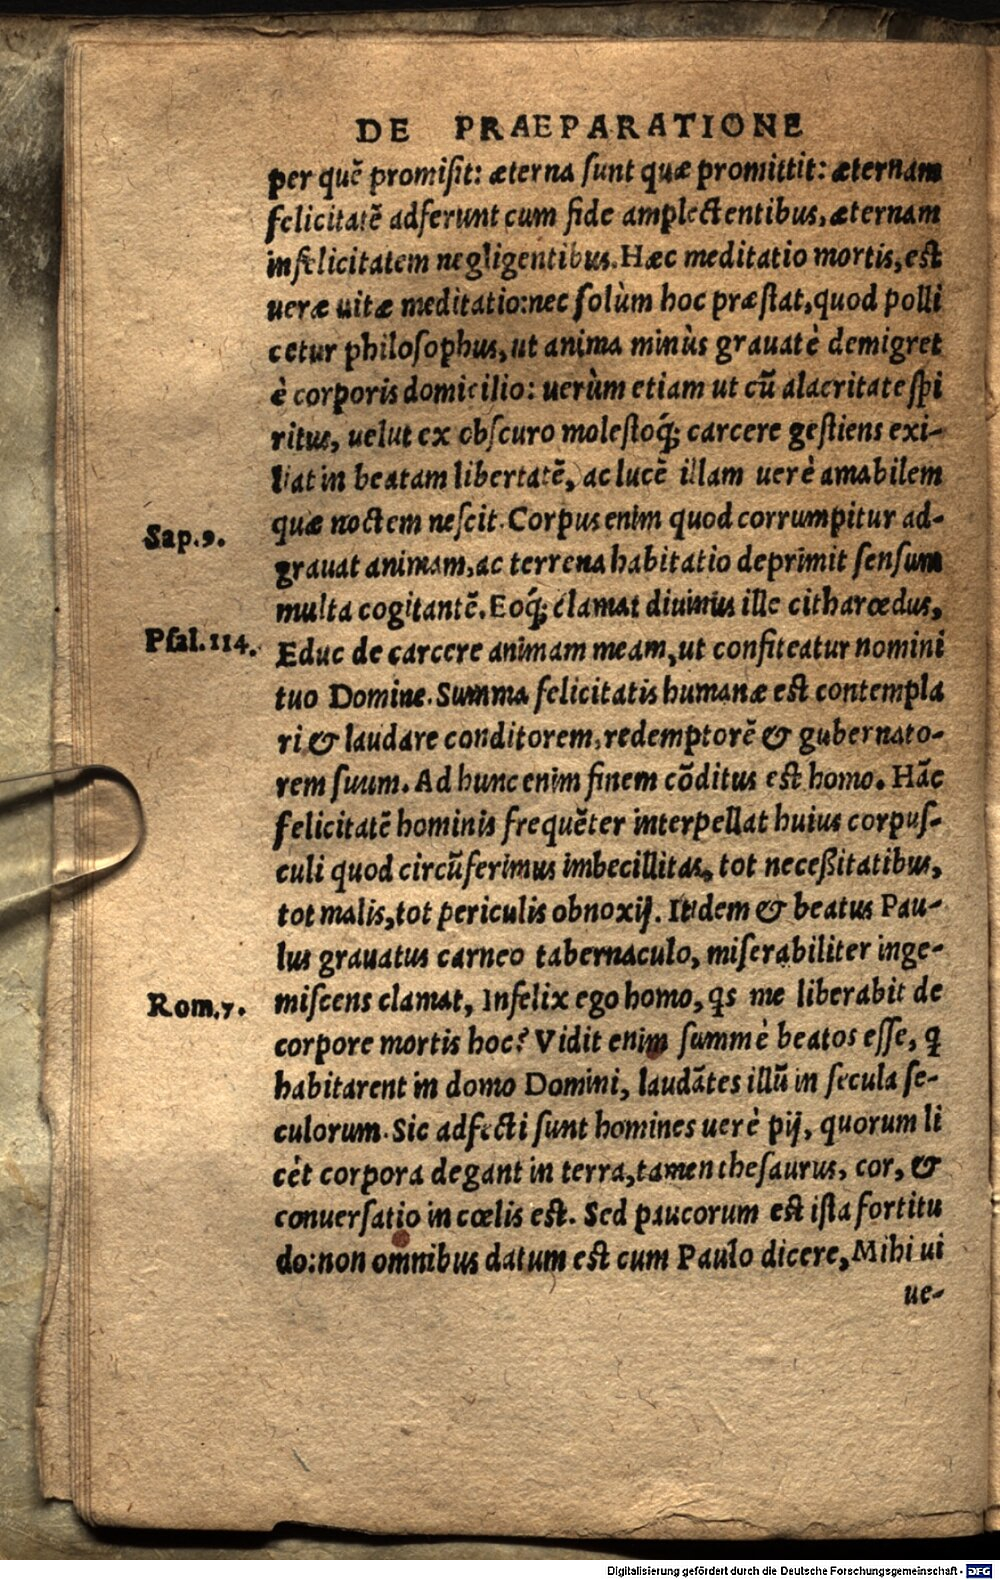 DE PRAEPARATIONE
per quẽ promiſit: æterna ſunt quæ promittit: æternam
felicitatẽ adferunt cum fide amplectentibus, æternam
infelicitatem negligentibus. Hæc meditatio mortis, est
ueræ uitæ meditatio: nec ſolùm hoc præſtat, quod polli
cetur philoſophus, ut anima minùs grauatè demigret
è corporis domicilio: uerùm etiam ut cũ alacritate ſpi
ritus, uelut ex obſcuro moleſtoq́; carcere geſtiens exi-
liat in beatam libertatẽ, ac lucẽ illam uerè amabilem
Sap.9. quæ noctem neſcit. Corpus enim quod corrumpitur ad-
grauat animam, ac terrena habitatio deprimit ſenſum
multa cogitantẽ. Eoq́; clamat diuinus ille citharœdus,
Pſal.114. Educ de carcere animam meam, ut confiteatur nomini
tuo Domine. Summa felicitatis humanæ est contempla
ri & laudare conditorem, redemptorẽ & gubernato-
rem ſuum. Ad hunc enim finem cõditus est homo. Hãc
felicitatẽ hominis frequẽter interpellat huius corpuſ-
culi quod circũferimus imbecillitas, tot neceßitatibus,
tot malis, tot periculis obnoxij. Itidem & beatus Pau-
lus grauatus carneo tabernaculo, miſerabiliter inge-
Rom.7. miſcens clamat, Infelix ego homo, qs me liberabit de
corpore mortis hoc? Vidit enim ſummè beatos eſſe, q
habitarent in domo Domini, laudãtes illũ in ſecula ſe-
culorum. Sic adfecti ſunt homines uerè pij, quorum li
cèt corpora degant in terra, tamen theſaurus, cor, &
conuerſatio in cœlis est. Sed paucorum est iſta fortitu
do: non omnibus datum est cum Paulo dicere, Mihi ui
ue-
Digitalisierung gefördert durch die Deutsche Forschungsgemeinschaft - DFG